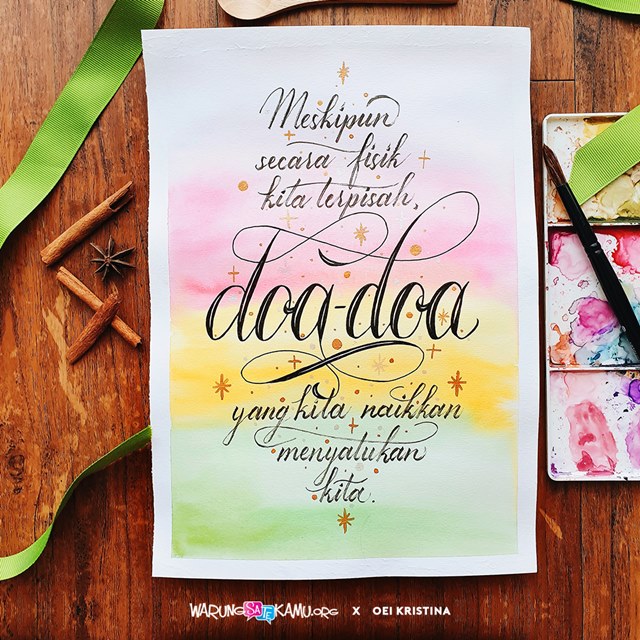 Meskipun
secara fisik
kita terpisah,
doa-doa
yang kita naikkan
menyatukan
kita.
WARUNGSATEKAMU.ORG X OEI KRISTINA